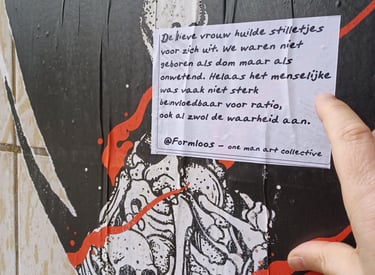 De lieve vrouw huilde stilletjes
voor zich uit. We waren niet
geboren als dom maar als
onwetend. Helaas het menselijke
was vaak niet sterk
beïnvloedbaar voor ratio,
ook al zwol de waarheid aan.
@Formloos – one man art collective